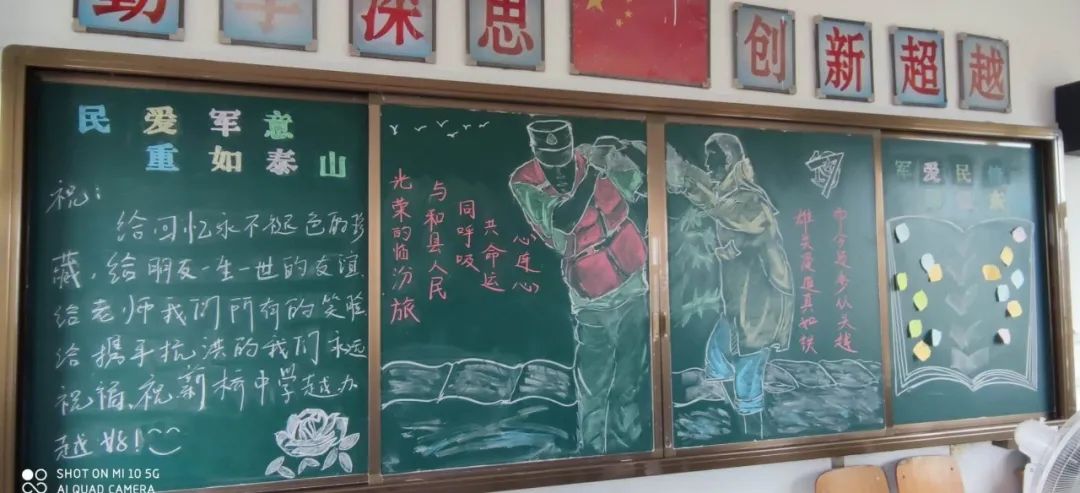 勤学深思 创新超越
民爱军意
重如泰山
祝:
给回忆永不褪色的珍
藏,给朋友一生一世的友谊
给老师我们所有的笑脸
给携手抗洪的我们永远
祝福,祝新桥中学越办
越好!
光荣的临汾旅
与和县人民
同呼吸
共命运
心连心
雄关漫道真如铁
而今迈步从头越
军爱民
SHOT ON MI 10 5G
AI QUAD CAMERA